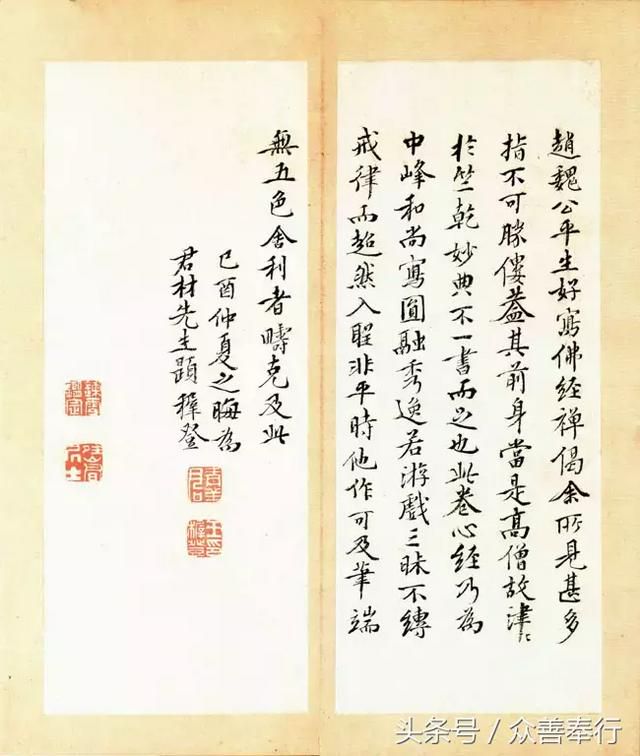 趙魏公平生好寫佛經禅偈余所見甚多
指不可勝僂蓋其前身當是髙僧故津〻
扵竺乾妙典不一書而足也此卷心經乃為
中峰和尚寫圓融秀逸若游戲三昧不縛
戒律而超然入聖非平時他作可及筆端
無五色舍利者疇克及此
己酉仲夏之晦為
君材先生題穉登
头条号／众善奉行